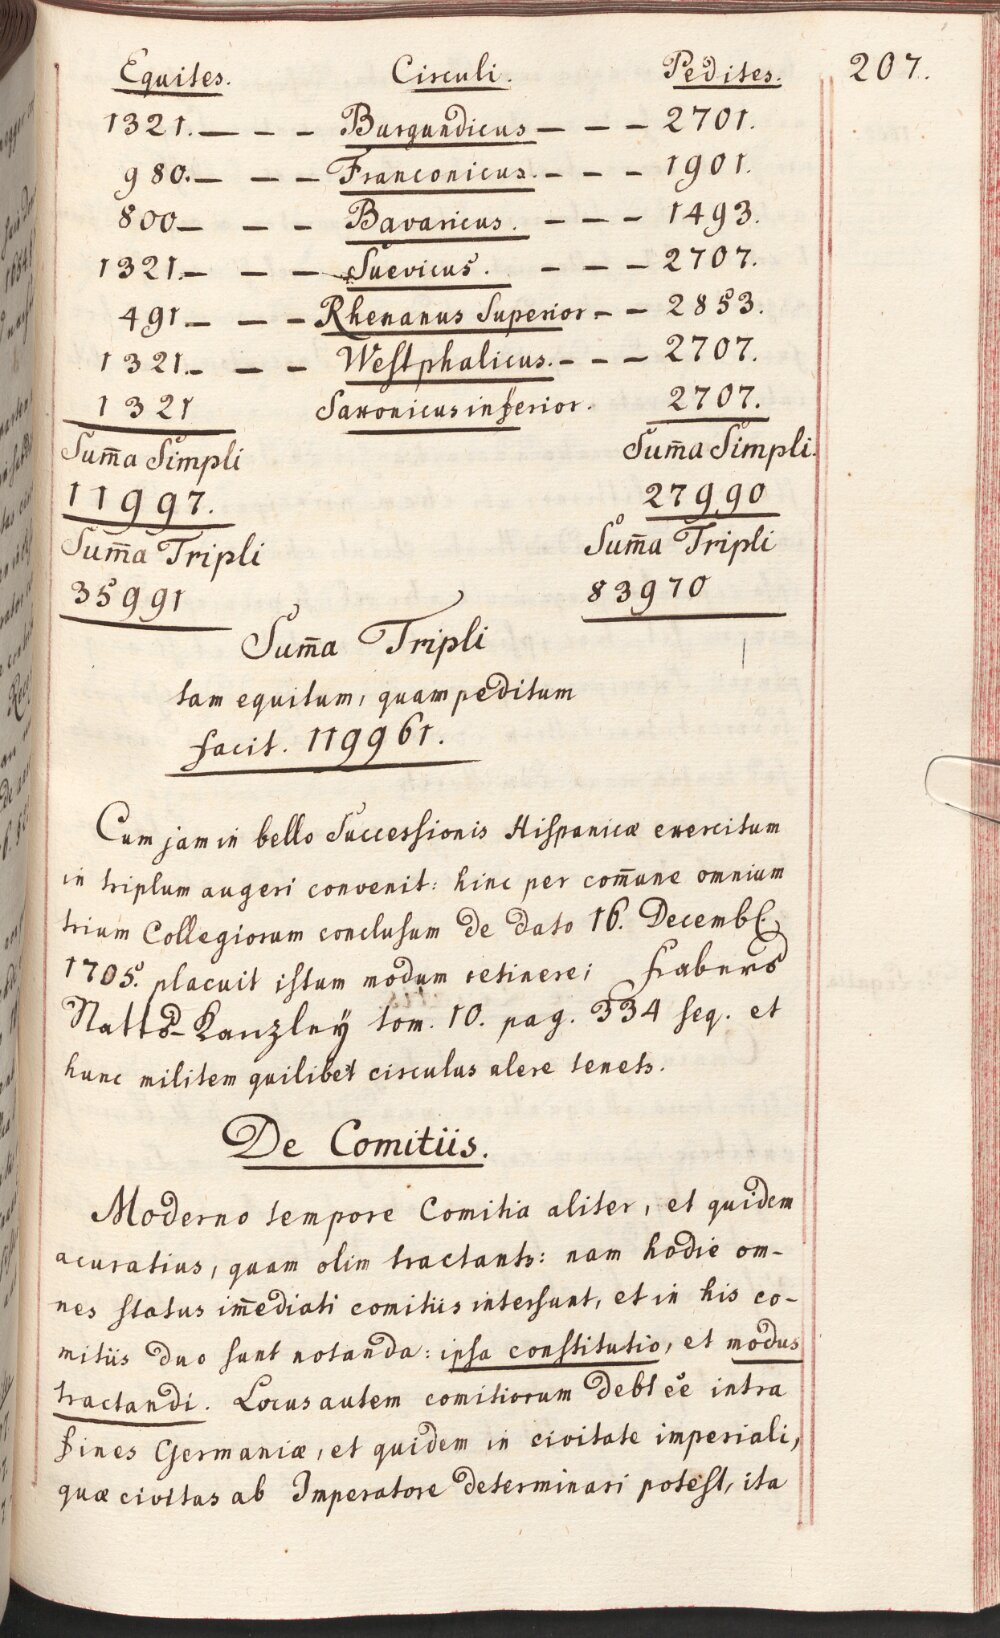 207.
Equites. Circuli. Pedites.
1321. — – – Burgundicus – – – 2701.
980. — – – Franconicus. – – – 1901.
800 – – – Bavaricus. – – – 1493.
1321. – – – Suevicus. – – – 2707.
491 – – – Rhenanus Superior – – 2853.
1321. – – – Westphalicus. – – – 2707.
1321 Saxonicus inferior. 2707.
Sum̄a Simpli Sum̄a Simpli.
11997. 27990
Sum̄a Tripli Sum̄a Tripli
35991 83970
Sum̄a Tripli
tam equitum, quam peditum
facit. 119961.
Cum jam in bello Successionis Hispanicæ exercitum
in triplum augeri convenit: hinc per com̄une omnium
trium Collegiorum conclusum de dato 16. Decemb
1705. placuit istum modum retinere; Fabers
Staats-Kanzley tom. 10. pag. 334 seq. et
hunc militem quilibet circulus alere tenetr.
De Comitiis.
Moderno tempore Comitia aliter, et quidem
acuratius, quam olim tractantr: nam hodie om-
nes status im̄ediati comitiis intersunt, et in his co-
mitiis duo sunt notanda: ipsa constitutio, et modus
tractandi. Locus autem comitiorum debt ee intra
fines Germaniæ, et quidem in civitate imperiali,
quæ civitas ab Imperatore determinari potest, ita